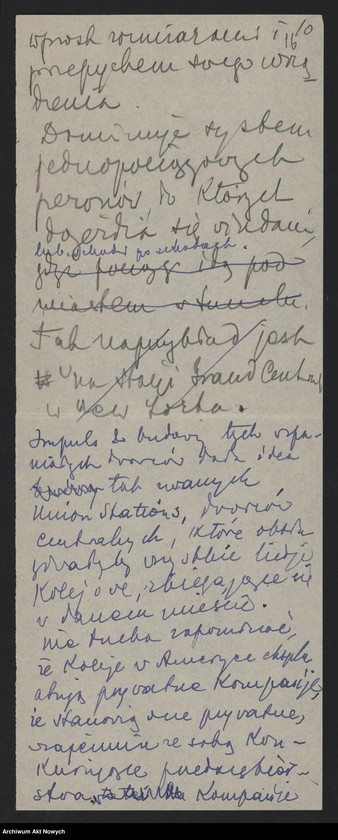 wprost rozmiarami i 10/116
przepychem swego urzą
dzenia.
Dominuje system
jednopociągowych
peronów do których
dojeżdża się windami,
lub schodzi po schodach.
gdyż pociągi idą pod
miastem w tunelu.
Tak naprzykład jest
na stacji Grand Central
w New Yorku.
Impuls do budowy tych wspa-
niałych dworców dała idea
tak zwanych
Union Stations, dworców
centralnych, które obsłu
giwałyby wszystkie linje
kolejowe, zbiegające się
w danem mieście.
nie trzeba zapominać,
że koleje w Ameryce eksplo
atują prywatne kompanje,
że stanowią one prywatne,
wzajemnie ze sobą kon-
kurujące przedsiębior-
stwa. Kompanje